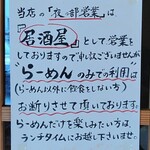 当店の「夜の部営業」は
『居酒屋』として営業を
しておりますので申し訳ございませんが
"らーめんのみでの利用は
(らーめん以外に飲食をしない方)
お断りさせて頂いております。
らーめんだけを楽しみたい方は、
ランチタイムにお越し下さいませ。